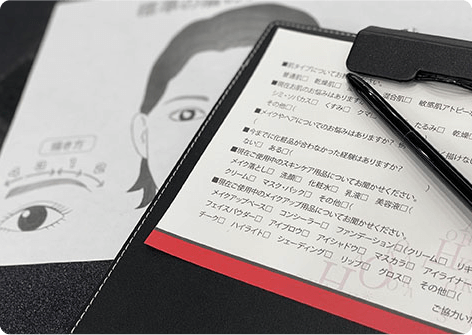 標準の
描き方
■肌タイプについてお
普通肌□ 乾燥肌 混合肌□ 敏感肌アトピー
■現在お肌のお悩みはありますか
シミ・ソバカス□ くすみ□ クマ たるみ□ 乾燥
その他□(
■メイクやヘアについてのお悩みはありますか? 描けない
■今までに化粧品が合わなかった経験はありますか?
ない□ ある□(
■現在ご使用中のスキンケア用品についてお聞かせください。
メイク落とし□ 洗顔□ 化粧水□ 乳液□ 美容液□
クリーム□ マスク・パック□ その他□(
■現在ご使用中のメイクアップ用品についてお聞かせください。
メイクアップベース□ コンシーラー□ ファンデーション□(クリーム□ リキ
フェイスパウダー□ アイブロウ□ アイシャドウ□ マスカラ□ アイライナー
チーク□ ハイライト□ シェーディング□ リップ□ グロス□ その他□(
ご協力いた